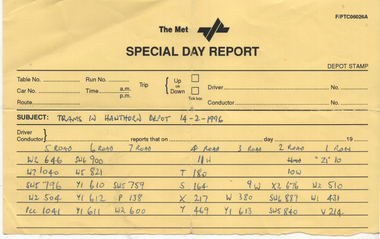 F/PTC06026A
The Met
SPECIAL DAY REPORT
DEPOT STAMP
Table No. Run No. Trip Up or Down Tick box Driver No.
Car No. Time a.m. p.m. Conductor No.
Route
SUBJECT: TRAMS IN HAWTHORN DEPOT 14-2-1996
Driver Conductor reports that on day 19
5 ROAD 6 ROAD 7 ROAD 4 ROAD 3 ROAD 2 ROAD 1 ROAD
W2 646 SW6 900 11 H "21" 10
W7 1040 W5 821 T 180 10W
SW5 796 Y1 610 SW5 759 S 164 9 W X2 676 W2 510
W2 504 Y1 612 P 138 X 217 W 380 SW6 887 W1 431
PCC 1041 Y1 611 W2 600 Y 469 Y1 613 SW5 840 V 214